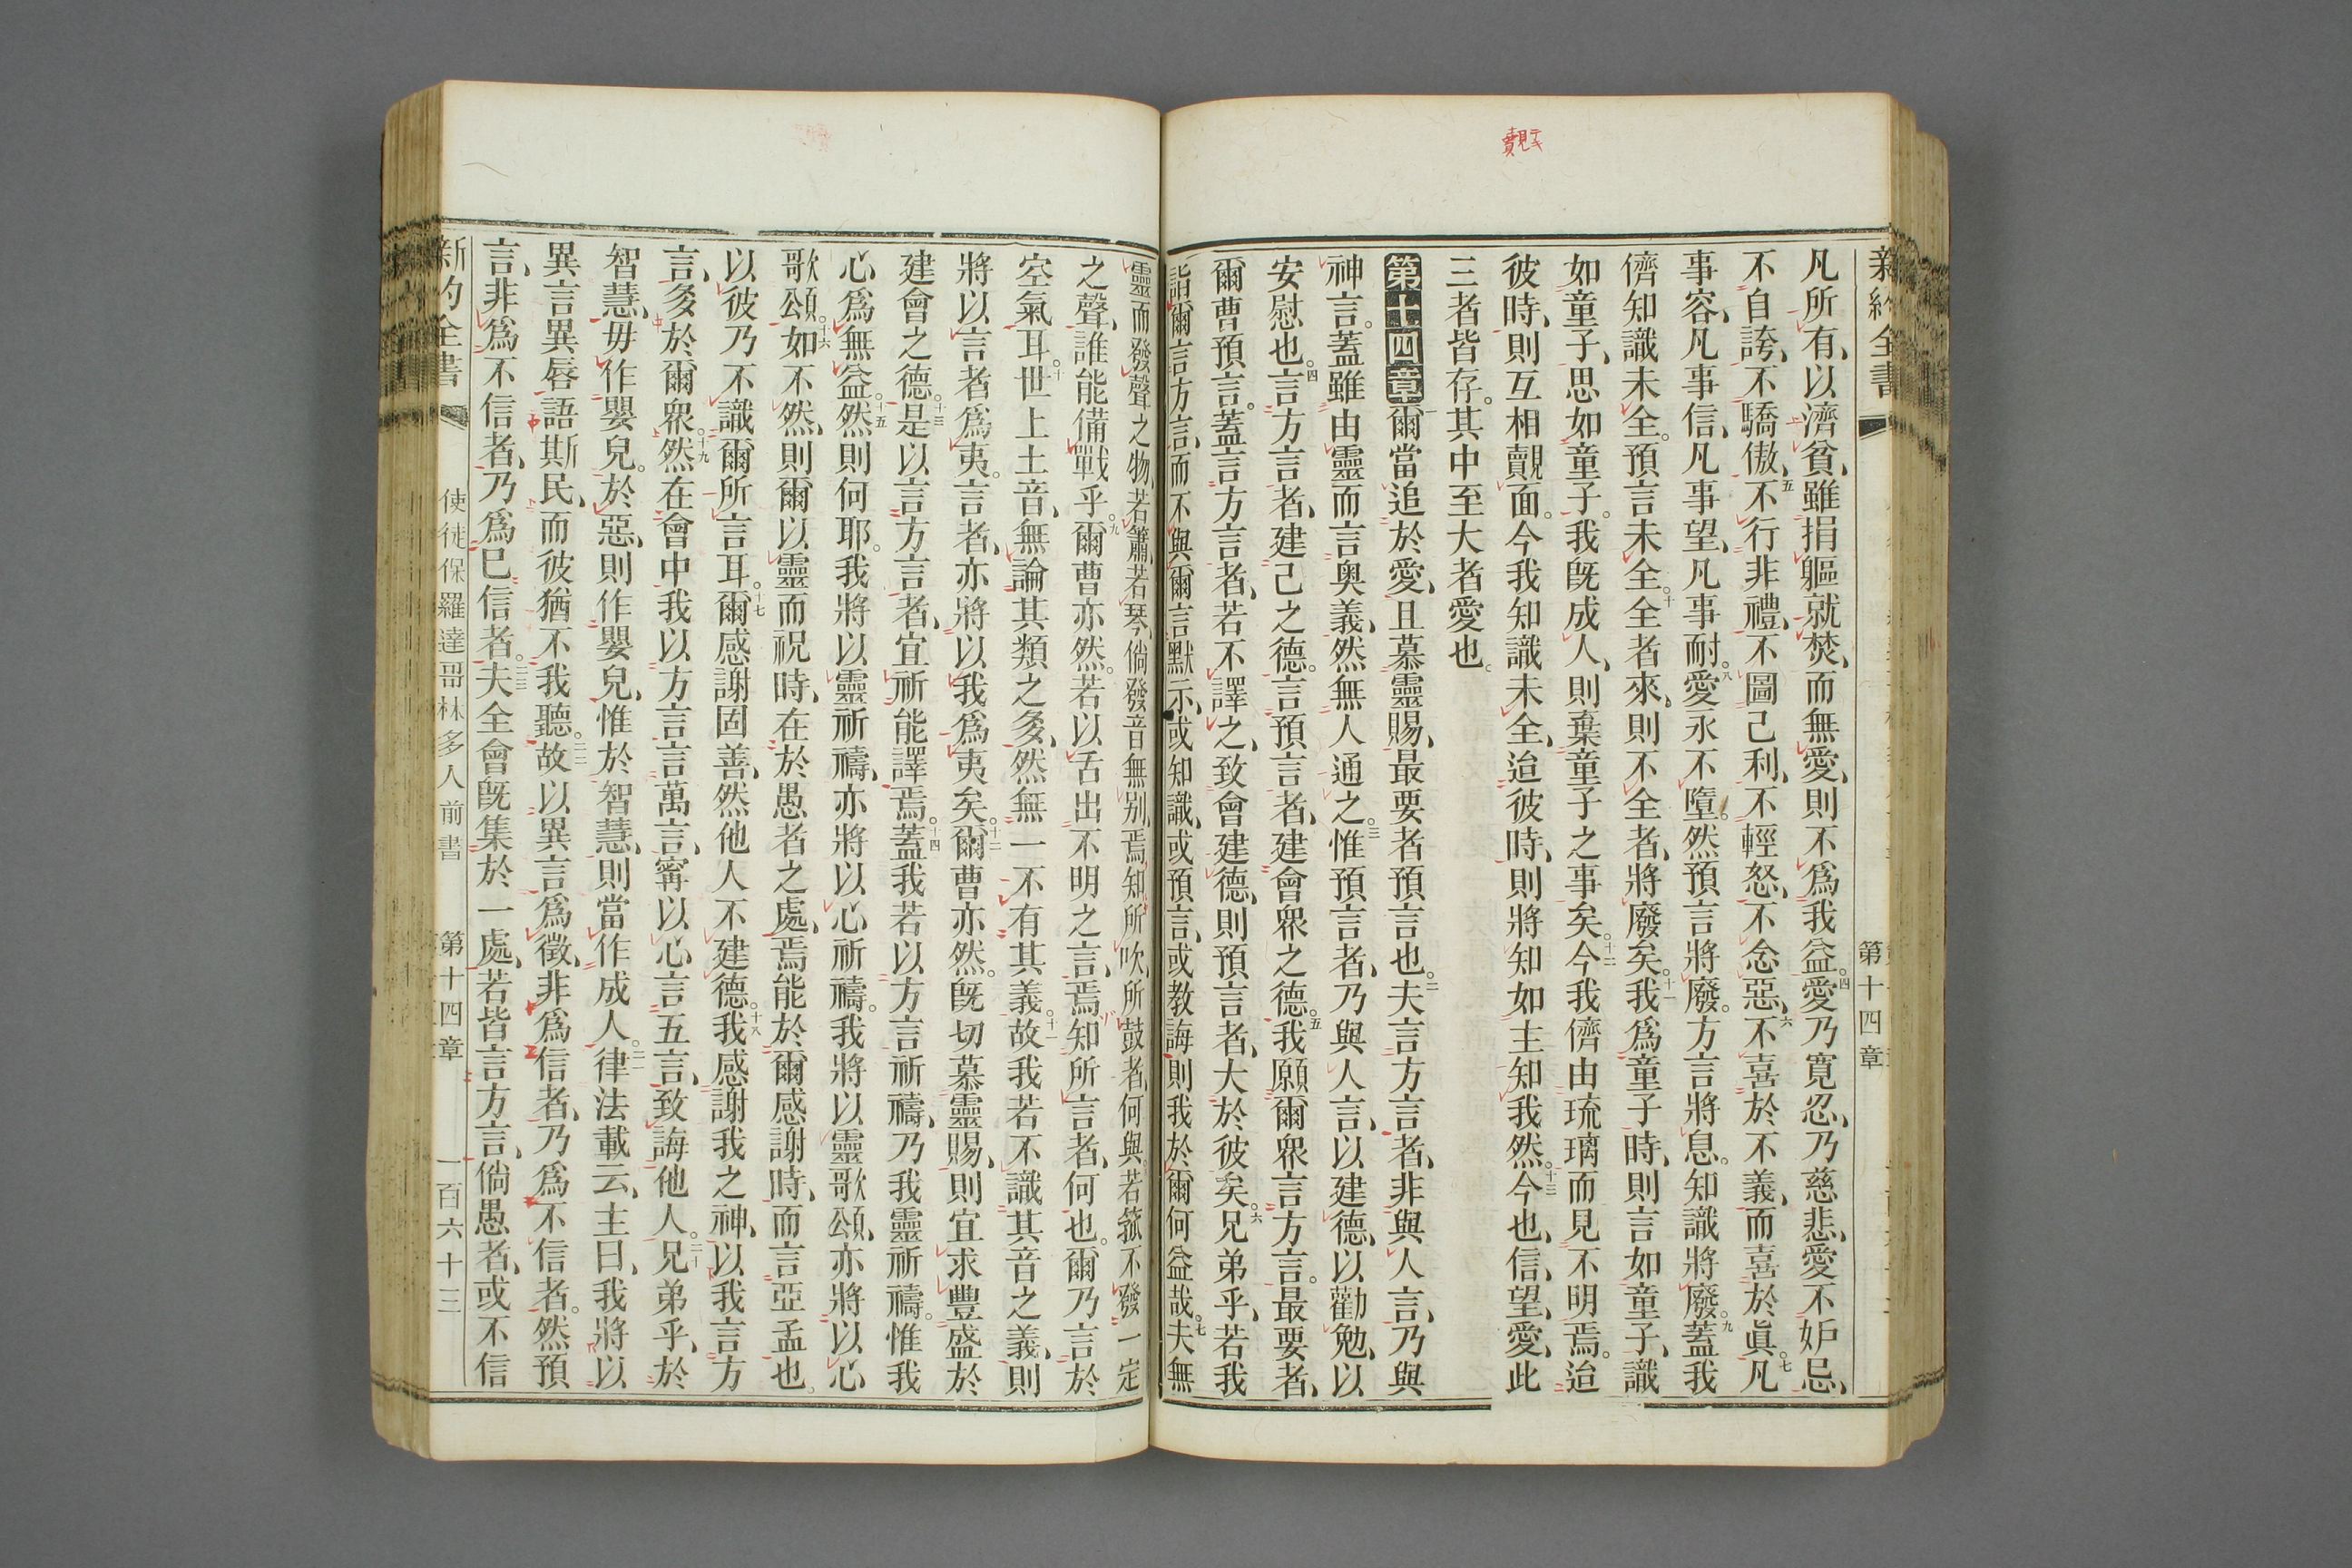 覿
新約全書
第十四章
凡所有、以濟貧、雖捐軀就焚、而無愛、則不爲我益。四愛乃寛忍、乃慈悲、愛不妒忌、
不自誇、不驕傲、五不行非禮、不圖己利、不輕怒、不念惡、六不喜於不義、而喜於眞。七凡
事容、凡事信、凡事望、凡事耐。八愛永不墮。然預言將廢。方言將息。知識將廢。九蓋我
儕知識未全。預言未全。十全者來、則不全者、將廢矣。十一我爲童子時、則言如童子、識
如童子、思如童子。我旣成人、則棄童子之事矣。十二今我儕由琉璃而見不明焉。迨
彼時、則互相覿面。今我知識未全、迨彼時、則將知如主知我然。十三今也、信、望、愛、此
三者皆存。其中至大者愛也。
第十四章一爾當追於愛、且慕靈賜、最要者預言也。二夫言方言者、非與人言、乃與
神言。蓋雖由靈而言奧義、然無人通之。三惟預言者、乃與人言、以建德、以勸勉、以
安慰也。四言方言者、建己之德。言預言者、建會衆之德。五我願爾衆言方言。最要者、
爾曹預言。蓋言方言者、若不譯之、致會建德、則預言者、大於彼矣。六兄弟乎、若我
詣爾言方言、而不與爾言默示、或知識、或預言、或教誨、則我於爾何益哉。七夫無
靈而發聲之物、若簫、若琴、倘發音無別、焉知所吹、所鼓者、何與、若箛不發一定
之聲、誰能備戰乎。九爾曹亦然。若以舌出不明之言、焉知所言者、何也。爾乃言於
空氣耳。十世上土音、無論其類之多、然無一不有其義。十一故我若不識其音之義、則
將以言者爲夷。言者、亦將以我爲夷矣。十二爾曹亦然。旣切慕靈賜、則宜求豐盛於
建會之德。十三是以言方言者、宜祈能譯焉。十四蓋我若以方言祈禱、乃我靈祈禱。惟我
心爲無益。十五然則何耶。我將以靈祈禱、亦將以心祈禱。我將以靈歌頌、亦將以心
歌頌。十六如不然、則爾以靈而祝時、在於愚者之處、焉能於爾感謝時、而言亞孟也。
以彼乃不識爾所言耳。十七爾感謝固善、然他人不建德。十八我感謝我之神、以我言方
言、多於爾衆。十九然在會中我以方言言萬言、寧以心言五言、致誨他人。二十兄弟乎、於
智慧、毋作嬰兒。於惡、則作嬰兒、惟於智慧、則當作成人。二一律法載云、主曰、我將以
異言異唇語斯民、而彼猶不我聽。二二故以異言爲徵、非爲信者、乃爲不信者。然預
言、非爲不信者、乃爲已信者。二三夫全會旣集於一處、若皆言方言、倘愚者、或不信
新約全書
使徒保羅達哥林多人前書
第十四章
一百六十三